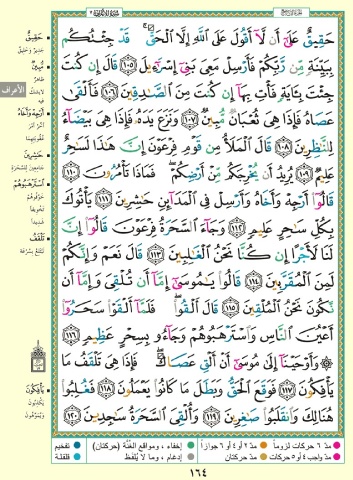 حَقِيقٌ عَلَىٰٓ أَن لَّآ أَقُولَ عَلَى ٱللَّهِ إِلَّا ٱلْحَقَّ ۚ قَدْ جِئْتُكُم
بِبَيِّنَةٍ مِّن رَّبِّكُمْ فَأَرْسِلْ مَعِىَ بَنِىٓ إِسْرَٰٓءِيلَ ١٠٥ قَالَ إِن كُنتَ
جِئْتَ بِـَٔايَةٍ فَأْتِ بِهَآ إِن كُنتَ مِنَ ٱلصَّٰدِقِينَ ١٠٦ فَأَلْقَىٰ
عَصَاهُ فَإِذَا هِىَ ثُعْبَانٌ مُّبِينٌ ١٠٧ وَنَزَعَ يَدَهُۥ فَإِذَا هِىَ بَيْضَآءُ
لِلنَّٰظِرِينَ ١٠٨ قَالَ ٱلْمَلَأُ مِن قَوْمِ فِرْعَوْنَ إِنَّ هَٰذَا لَسَٰحِرٌ
عَلِيمٌ ١٠٩ يُرِيدُ أَن يُخْرِجَكُم مِّنْ أَرْضِكُمْ ۖ فَمَاذَا تَأْمُرُونَ ١١٠
قَالُوٓا۟ أَرْجِهْ وَأَخَاهُ وَأَرْسِلْ فِى ٱلْمَدَآئِنِ حَٰشِرِينَ ١١١ يَأْتُوكَ
بِكُلِّ سَٰحِرٍ عَلِيمٍ ١١٢ وَجَآءَ ٱلسَّحَرَةُ فِرْعَوْنَ قَالُوٓا۟ إِنَّ
لَنَا لَأَجْرًا إِن كُنَّا نَحْنُ ٱلْغَٰلِبِينَ ١١٣ قَالَ نَعَمْ وَإِنَّكُمْ
لَمِنَ ٱلْمُقَرَّبِينَ ١١٤ قَالُوا۟ يَٰمُوسَىٰٓ إِمَّآ أَن تُلْقِىَ وَإِمَّآ أَن
نَّكُونَ نَحْنُ ٱلْمُلْقِينَ ١١٥ قَالَ أَلْقُوا۟ ۖ فَلَمَّآ أَلْقَوْا۟ سَحَرُوٓا۟
أَعْيُنَ ٱلنَّاسِ وَٱسْتَرْهَبُوهُمْ وَجَآءُو بِسِحْرٍ عَظِيمٍ ١١٦
۞ وَأَوْحَيْنَآ إِلَىٰ مُوسَىٰٓ أَنْ أَلْقِ عَصَاكَ ۖ فَإِذَا هِىَ تَلْقَفُ مَا
يَأْفِكُونَ ١١٧ فَوَقَعَ ٱلْحَقُّ وَبَطَلَ مَا كَانُوا۟ يَعْمَلُونَ ١١٨ فَغُلِبُوا۟
هُنَالِكَ وَٱنقَلَبُوا۟ صَٰغِرِينَ ١١٩ وَأُلْقِىَ ٱلسَّحَرَةُ سَٰجِدِينَ ١٢٠
حَقِيقٌ
جدير وخليق
مُّبِينٌ
الأعراف
أَرْجِهْ وَأَخَاهُ
حَٰشِرِينَ
ٱسْتَرْهَبُوهُمْ
تَلْقَفُ
يَأْفِكُونَ
مدّ ٦ حركات لزوماً
مدّ ٢ أو ٤ أو ٦ جوازاً
إخفاء، ومواقع الغُنَّة (حركتان)
تفخيم
مدّ واجب ٤ أو ٥ حركات
مدّ حركتان
إدغام، وما لا يُلفظ
قلقلة
١٦٤